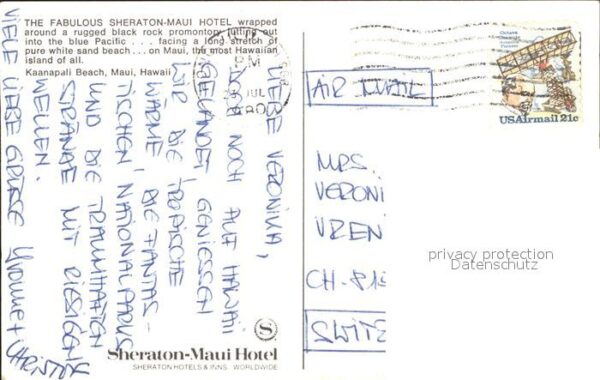 THE FABULOUS SHERATON-MAUI HOTEL wrapped
around a rugged black rock promontory jutting out
into the blue Pacific . . . facing a long stretch of
pure white sand beach . . . on Maui, the most Hawaiian
island of all.
Kaanapali Beach, Maui, Hawaii
LIEBE VERONIKA,
DOCH NOCH AUF HAWAII
GELANDET GENIESSEN
WIR DIE TROPISCHE
WÄRME, DIE FANTAS-
TISCHEN NATIONALPARKS
UND DIE TRAUMHAFTEN
STRÄNDE MIT RIESIGEN
WELLEN.
VIELE LIEBE GRÜSSE Yvonne +
PM
JUL
USAirmail 21c
AIR MAIL
MRS.
VERONI
VREN
CH-815
SWITZ
privacy protection
Datenschutz
S
Sheraton-Maui Hotel
SHERATON HOTELS & INNS WORLDWIDE